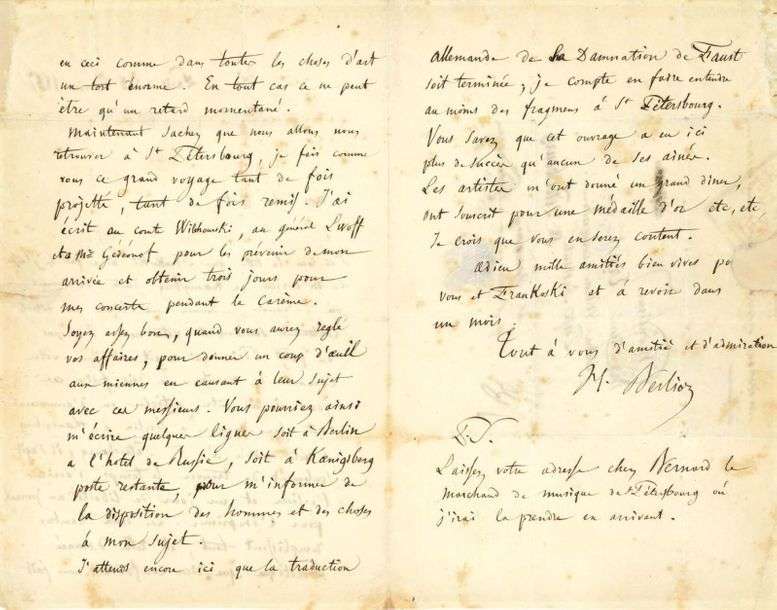 en ceci comme dans toutes les choses d'art
un tort énorme. En tout cas ce ne peut
être qu'un retard momentané.
Maintenant sachez que nous allons nous
retrouver à St Pétersbourg, je fais comme
vous ce grand voyage tant de fois
projetté, tant de fois remis. J'ai
écrit au comte Wielhourski, au général Lwoff
et a Mr Gédéonof pour les prévenir de mon
arrivée et obtenir trois jours pour
mes concerts pendant le Carême.
Soyez assez bon, quand vous aurez reglé
vos affaires, pour donner un coup d'œuil
aux miennes en causant à leur sujet
avec ces messieurs. Vous pourriez ainsi
m'écrire quelques lignes soit à Berlin
a l'hotel de Russie, soit à Kœnigsberg
poste restante, pour m'informer de
la disposition des hommes et des choses
à mon sujet.
J'attends encore ici que la traduction
allemande de la Damnation de Faust
soit terminée; je compte en faire entendre
au moins des fragmens à St Pétersbourg.
Vous savez que cet ouvrage a eu ici
plus de succès qu'aucun de ses ainés.
Les artistes m'ont donné un grand diner,
ont souscrit pour une médaille d'or etc, etc,
Je crois que vous en serez content.
adieu mille amitiés bien vives po
vous et Frankoski et à revoir dans
un mois
Tout à vous d'amitié et d'admiration
H. Berlioz
P.S.
Laissez votre adresse chez Bernard le
marchand de musique de St Pétersbourg où
j'irai la prendre en arrivant.